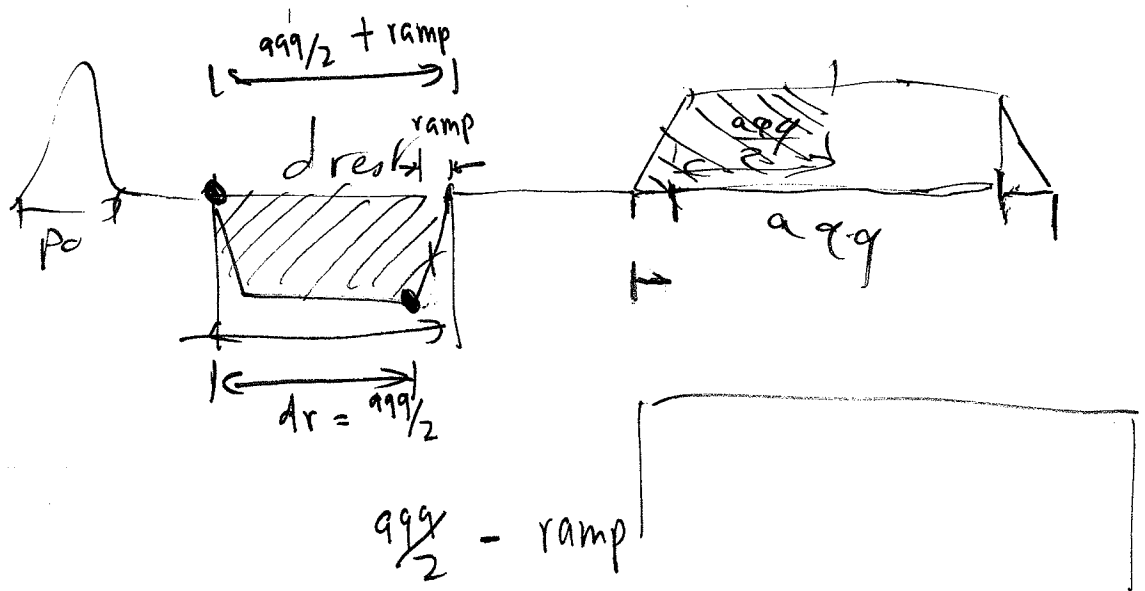 aqq/2 + ramp
ramp
d rest
aqq
2
aqq
po
dr = aqq/2
aqq/2 - ramp